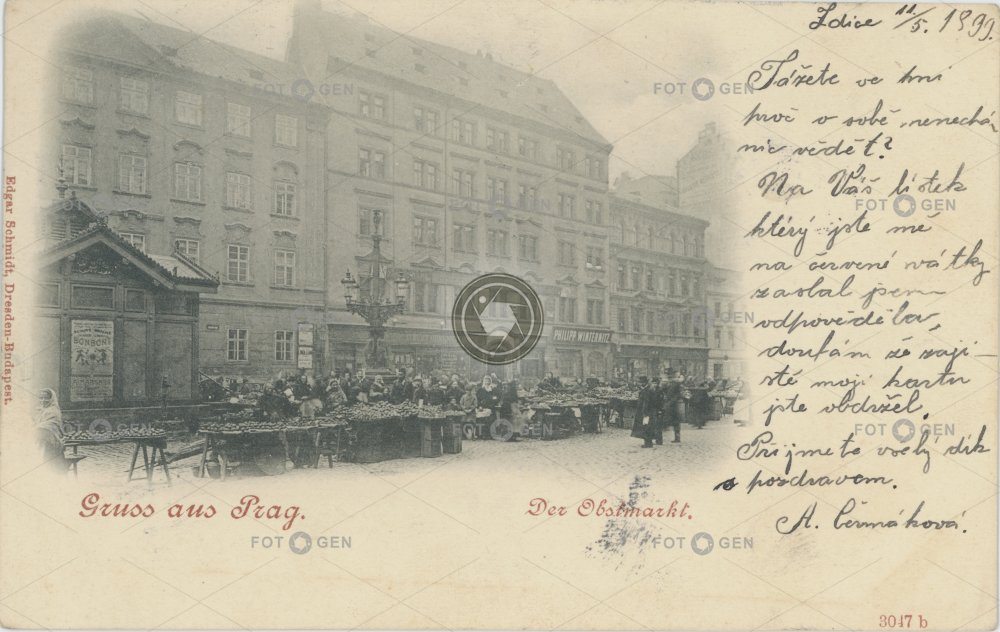 Zdice 11/5. 1899.
Tážete ve hni
proč o sobě nenechá-
nic vědět?
Na Váš lístek
který jste mě
na červené
zaslal jsem
odpověděla,
doufám že zaji-
sté moji kartu
jste obdržel.
Přijmete vřelý dík
s pozdravem.
A. Čermáková.
Edgar Schmidt, Dresden-Budapest.
BONBONY
PHILIPP WINTERNITZ
Gruss aus Prag.
Der Obstmarkt.
3047 b
FOTOGEN
FOTOGEN
FOTOGEN
FOTOGEN
FOTOGEN
FOTOGEN